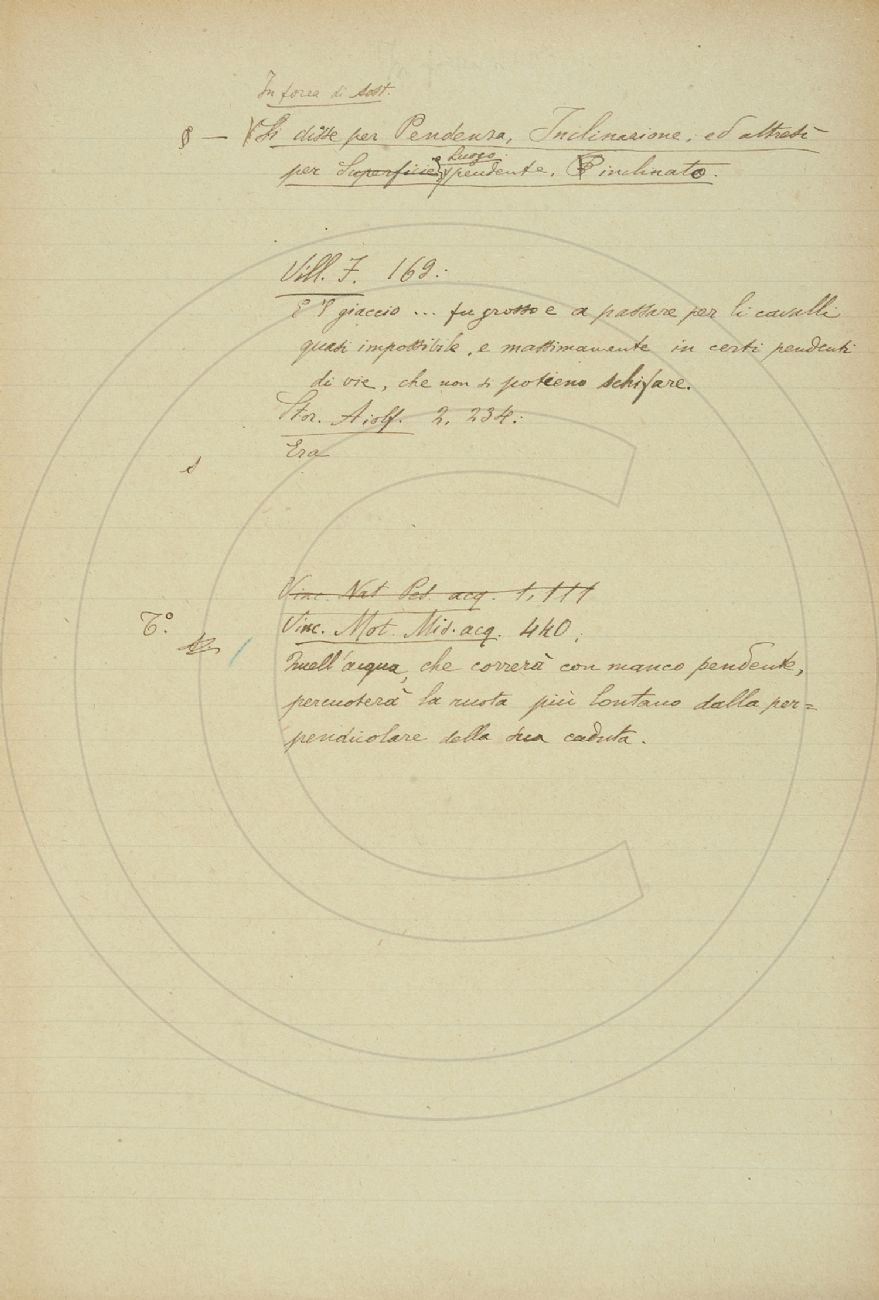 In forza di sost.
§ — Si disse per Pendenza, Inclinazione, ed altresì
Luogo
per Superficie pendente, inclinato.
Vill. F. 162:
E 'l giaccio ... fu grosso e a passare per li cavalli
quasi impossibile, e massimamente in certi pendenti
di vie, che non si potieno schifare.
Stor. Aiolf. 2. 234:
Era
Vinc. Nat. Pes. acq. 1, 111
T.º
Vinc. Mot. Mis. acq. 440:
Quell'acqua, che correrà con manco pendente,
percuoterà la ruota più lontano dalla per=
pendicolare della sua caduta.